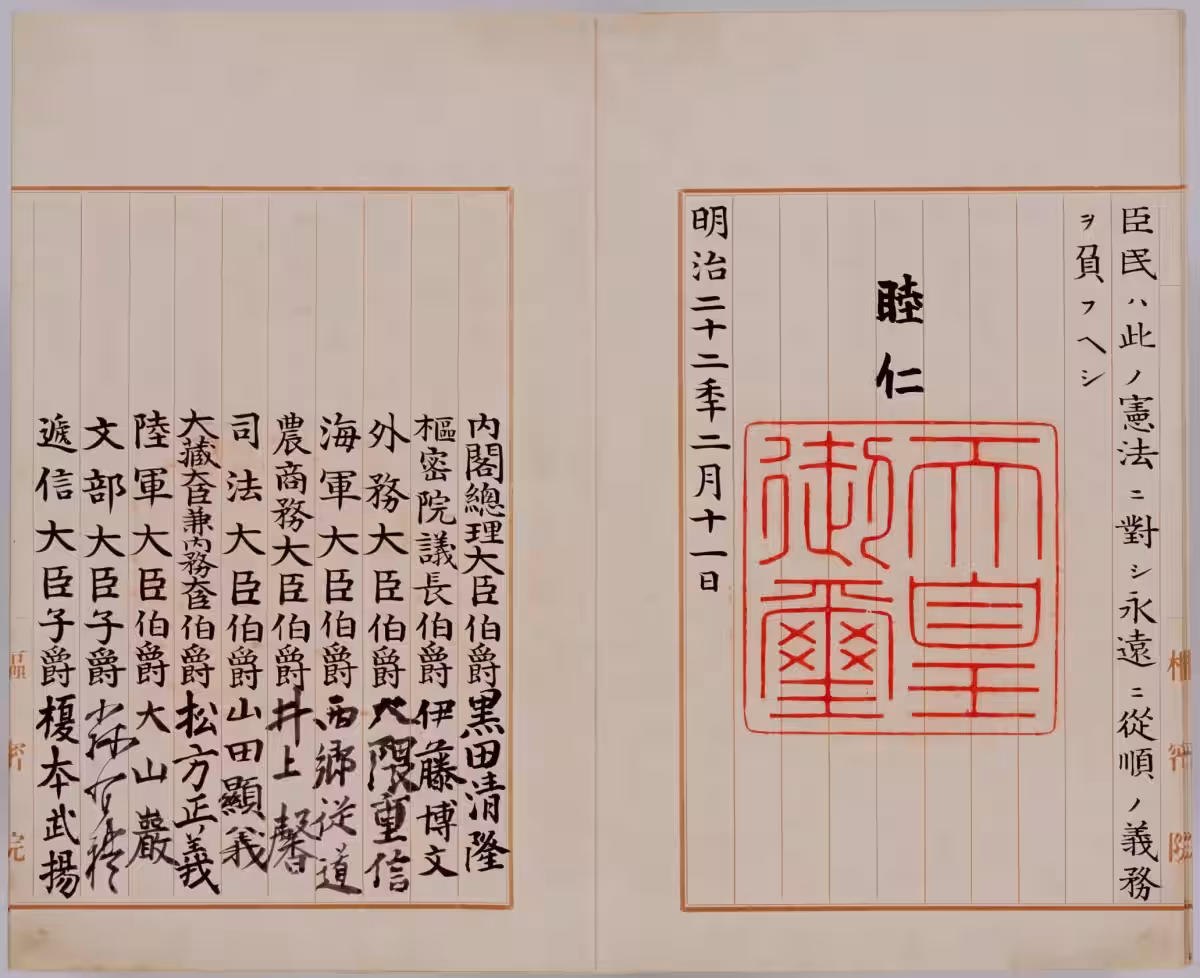 臣民ハ此ノ憲法ニ對シ永遠ニ從順ノ義務
ヲ負フヘシ
睦仁
天皇
御璽
明治二十二年二月十一日
樞密院
內閣總理大臣伯爵黑田淸隆
樞密院議長伯爵伊藤博文
外務大臣伯爵大隈重信
海軍大臣伯爵西鄕從道
農商務大臣伯爵井上馨
司法大臣伯爵山田顯義
大藏大臣兼內務大臣伯爵松方正義
陸軍大臣伯爵大山巖
文部大臣子爵森有禮
遞信大臣子爵榎本武揚